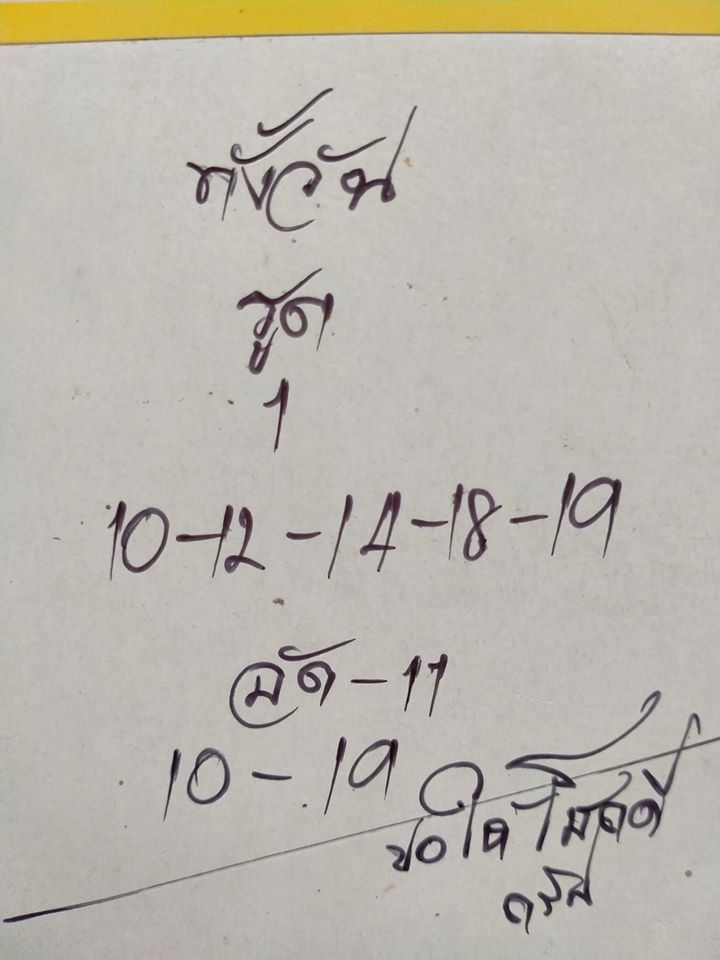 ทั้งวัน
รูด
1
10-12-14-18-19
อัด-11
10-19
ขอให้โชคดี
ครับ